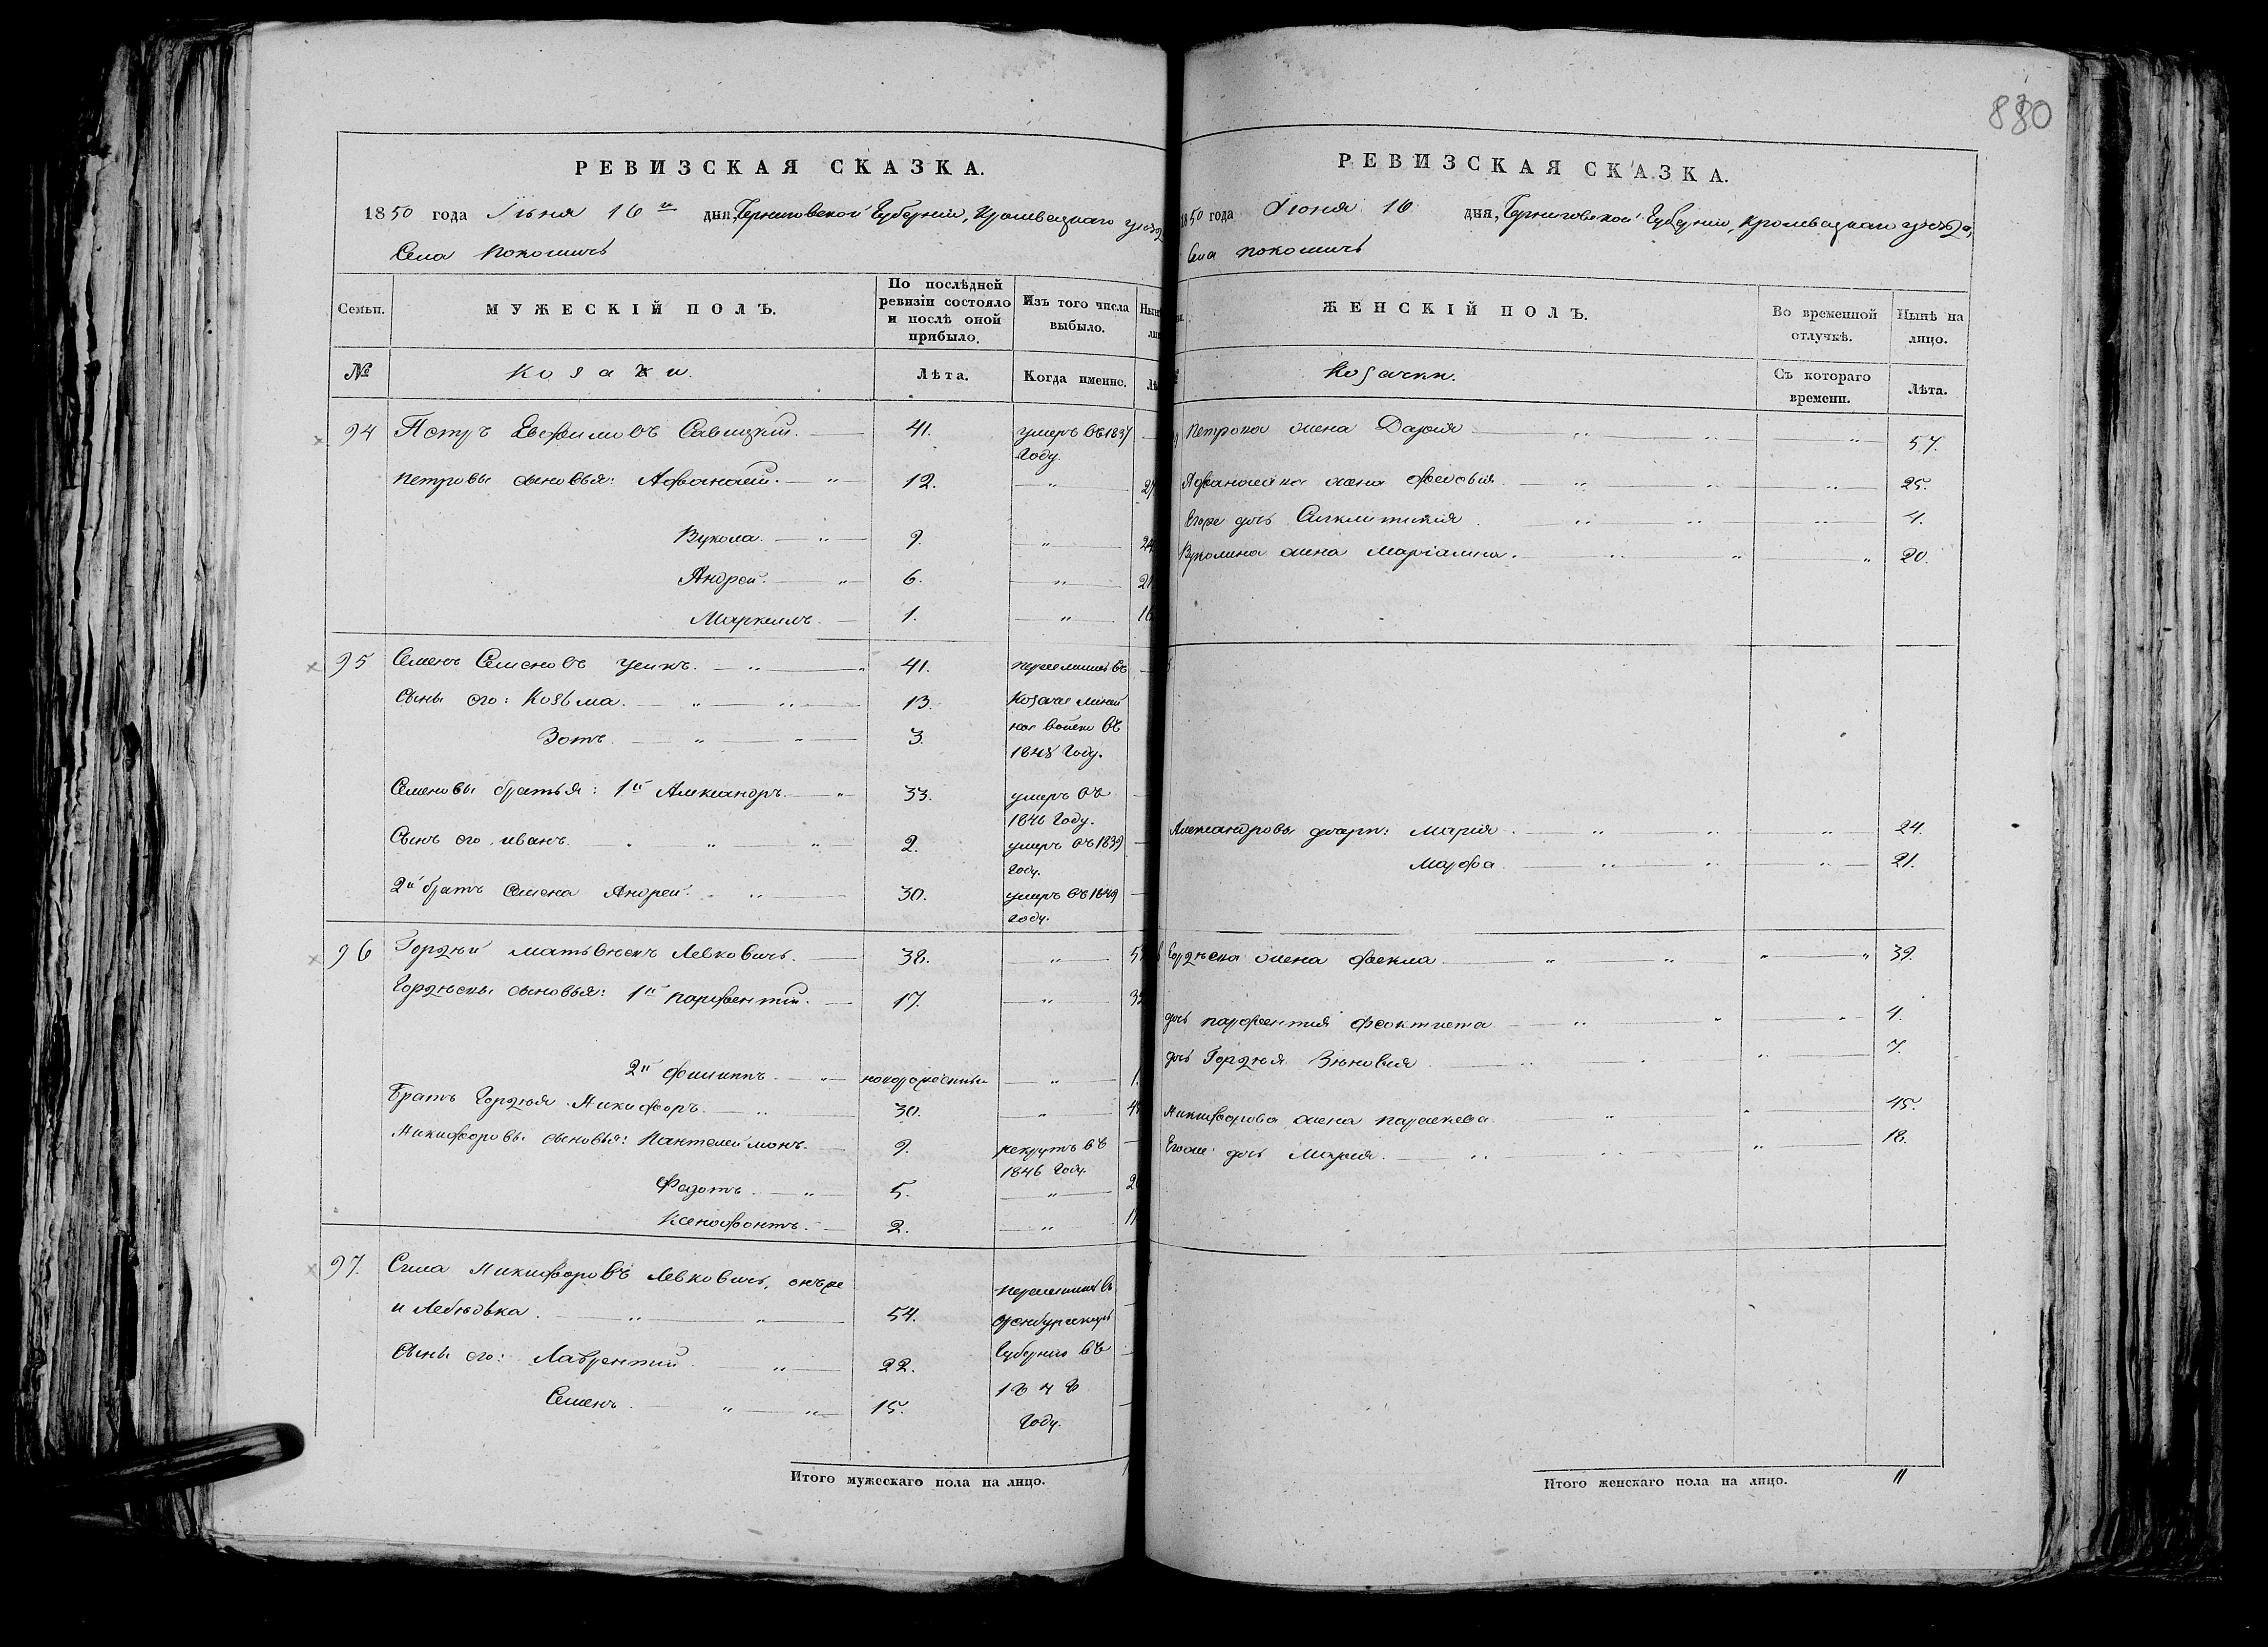 880
РЕВИЗСКАЯ СКАЗКА.
1850 года Іюня 16го дня, Черниговской Губернии, Кролевецкаго уезд
Села Покошичъ
Семьи.
МУЖЕСКІЙ ПОЛЪ.
По послѣдней ревизіи состояло и послѣ оной прибыло.
Изъ того числа выбыло.
№
Козаки.
Лѣта.
Когда именно.
94 Петръ Евфимовъ Савицкій. 41. умеръ въ 1837 Году.
Петровы сыновья: Афанасій. 12. 27
Вукола. 9. 24
Андрей. 6. 21
Маркеллъ. 1. 16
95 Семенъ Семеновъ 41. переселились въ
Сыны его: Козьма. 13. Козачье Линей
Зотъ. 3. ное войско въ
1848 Году.
Семеновы братья: 1й Александръ. 33. умеръ въ 1846 Году.
Сынъ его Иванъ. 2. умеръ въ 1839 Году.
2й братъ Семена Андрей. 30. умеръ въ 1849 Году.
96 Гордѣй Матвѣевъ Левковичъ. 38.
Гордѣевы сыновья: 1й Парфентій. 17.
2й Филиппъ. новорожденный 1.
Братъ Гордѣя Никифоръ. 30.
Никифоровы сыновья: Пантелеймонъ. 9. рекрутъ въ 1846 Году.
Федотъ. 5.
Ксенофонтъ. 2.
97. Сила Никифоровъ Левковичъ, онъ же
и Лебѣдька. 54. переселились въ
Оренбургскую
Сыны его: Лаврентій 22. Губернію въ
Семенъ. 15. 1848
Году.
Итого мужескаго пола на лицо.
РЕВИЗСКАЯ СКАЗКА.
1850 года Іюня 16 дня, Черниговской Губернии, Кролевецкаго уезда,
Села Покошичъ
ЖЕНСКІЙ ПОЛЪ.
Во временной отлучкѣ.
Нынѣ на лицо.
Козачки.
Съ котораго времени.
Лѣта.
Петрова жена Дарія 57.
Афанасіева жена Феодосія 25.
Егоже дочь Синклитикія 4.
Вуколина жена Маріамна. 20.
Александровы дочери: Марія 24.
Марфа. 21.
Гордѣева жена Фекла 39.
дочь Парфентія Феоктиста 4.
дочь Гордѣя Зѣновія 7.
Никифорова жена Параскева. 45.
Егоже дочь Марія. 18.
Итого женскаго пола на лицо. 11